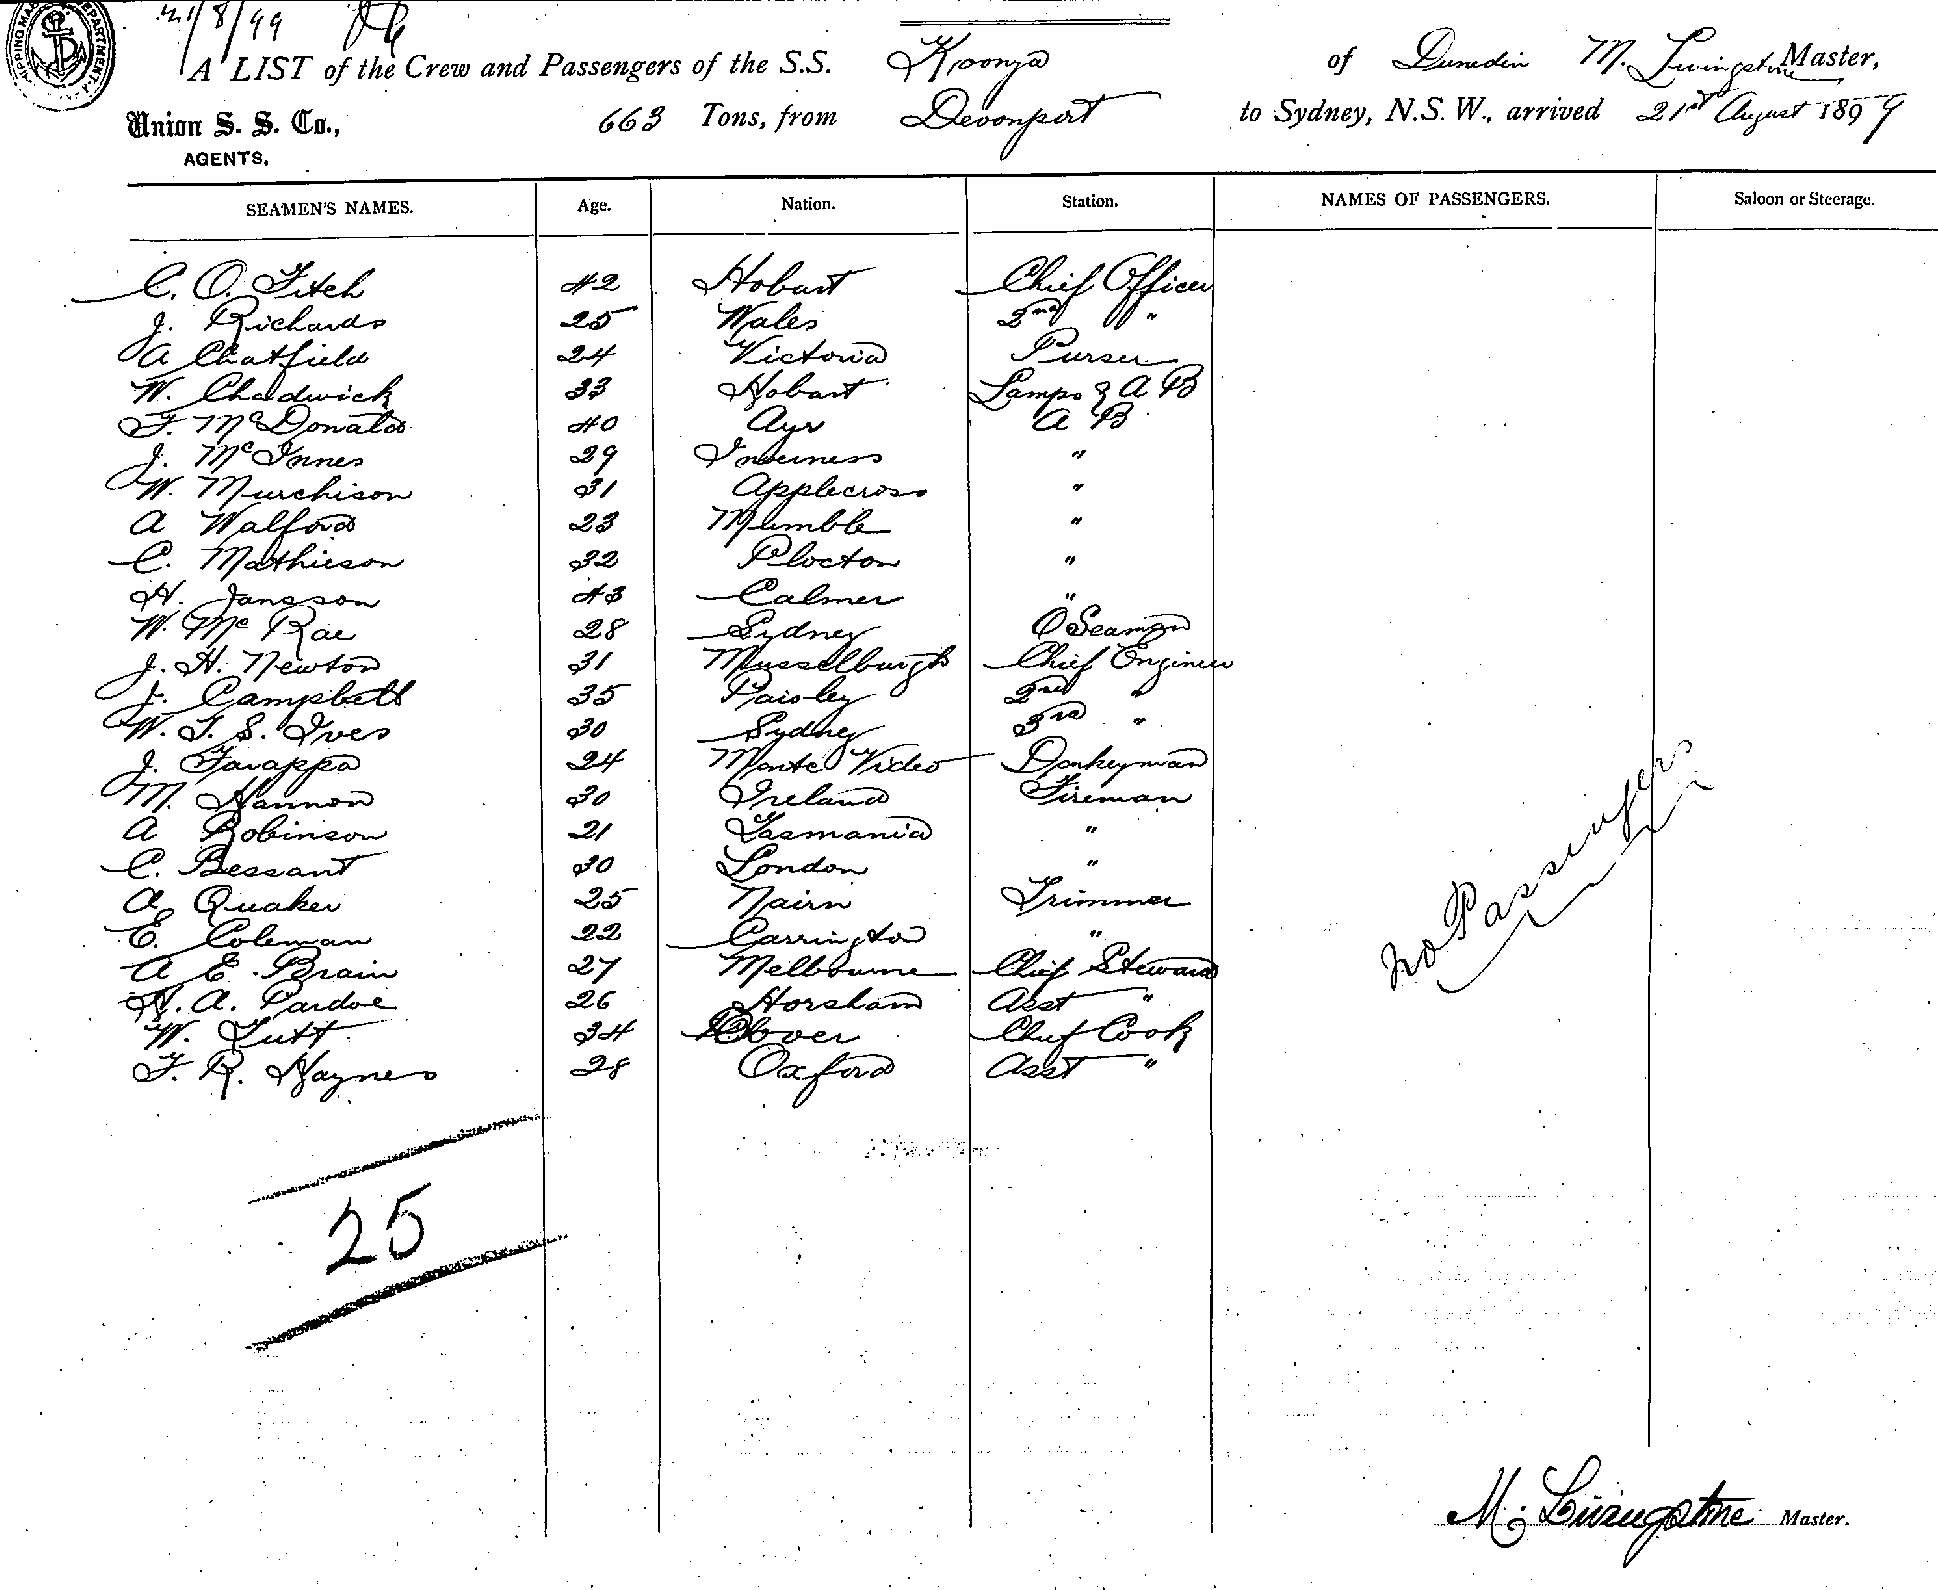 21/8/99
A LIST of the Crew and Passengers of the S.S. Koonya of Dunedin M. Livingstone Master,
Union S. S. Co., 663 Tons, from Devonport to Sydney, N.S.W., arrived 21st August 1899
AGENTS.
SEAMEN'S NAMES. Age. Nation. Station. NAMES OF PASSENGERS. Saloon or Steerage.
C. O. Fitch 42 Hobart Chief Officer
J. Richards 25 Wales 2nd "
A Chatfield 24 Victoria Purser
W. Chadwick 33 Hobart Lamps & A B
F. McDonald 40 Ayr A B
J. McInnes 29 Inverness "
W. Murchison 31 Applecross "
A Walford 23 Mumble "
C. Mathieson 32 Plocton "
H. Jansson 43 Calmer "
W. McRae 28 Sydney O Seaman
J. H. Newton 31 Musselburgh Chief Engineer
J. Campbell 35 Paisley 2nd "
W. T. S. Ives 30 Sydney 3rd "
J. Farappa 24 Monte Video Donkeyman
M. Hannon 30 Ireland Fireman
A Robinson 21 Tasmania "
C. Bessant 30 London "
A Quaker 25 Nairn Trimmer
E. Coleman 22 Carrington "
A E. Brain 27 Melbourne Chief Steward
H. A. Pardoe 26 Horsham Asst "
W. Tutt 34 Dover Chief Cook
F. R. Haynes 28 Oxford Asst "
No Passengers
25
M. Livingstone Master.